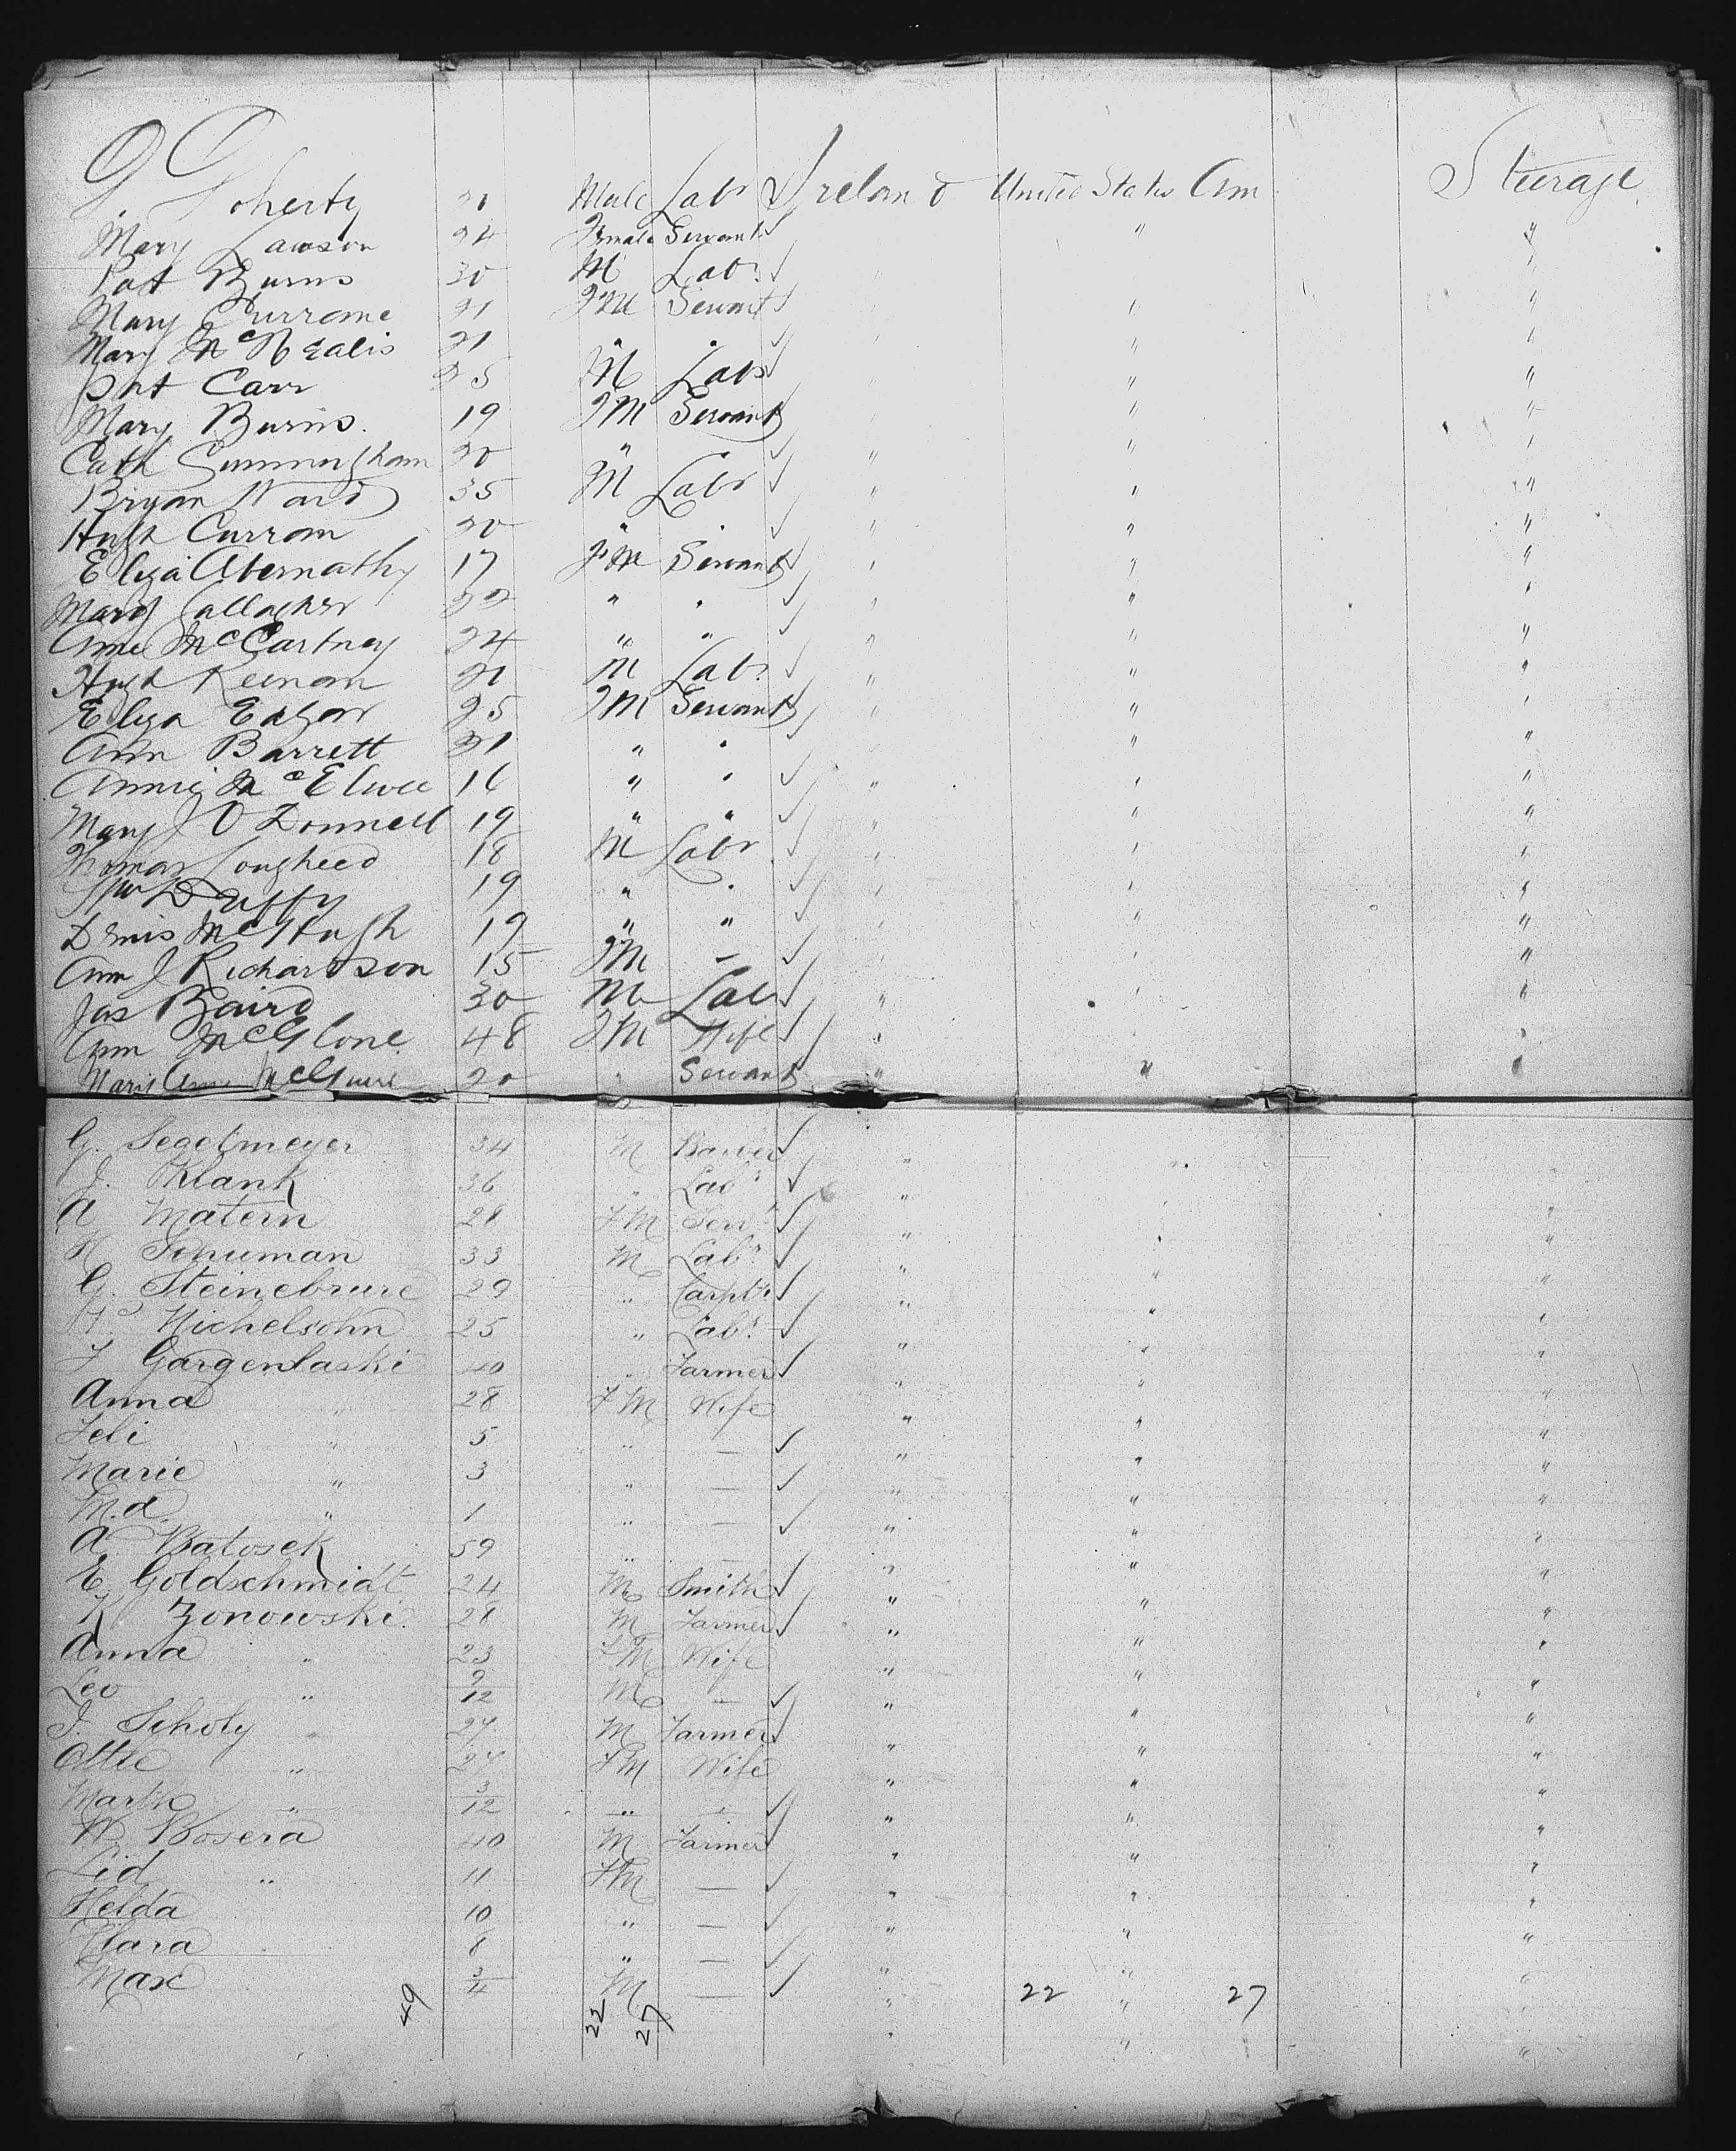 G Doherty 21 Male Labr Ireland United States Am Steerage
Mary Lawson 24 Female Servant " "
Pat Burns 30 M Labr "
Mary Currane 21 FM Servant " "
Mary McNealis 21 " " " "
Pat Carr 25 M Labr " "
Mary Burns. 19 FM Servant " "
Cath Cunningham 20 " " "
Bryan Ward 35 M Labr " " "
Hugh Curran 20 " " " " "
Eliza Abernathy 17 FM Servant " " "
Mary Gallagher 22 " " " " "
Anne McCartney 24 " " " " "
Hugh Keenan 21 M Labr " " "
Eliza Edgar 25 FM Servant " " "
Ann Barrett 21 " " " "
Annie McElwee 16 " " " " "
Mary J O Donnell 19 " " " "
Thomas Lougheed 18 M Labr " " "
Wm Duffy 19 " " " " "
Denis McHugh 19 " " " " "
Ann J Richardson 15 FM — " " "
Jas Baird 30 M Labr " " "
Ann McGlone 48 FM Wife " " "
Mary Ann McGuire 20 " Servant " " "
G. Segetmeyer 34 M " "
J. Klank 36 " Labr "
A Matern 28 FM Serv " "
H Schuman 33 M Labr " " "
G. Steinebrure 29 " Carptr " " "
H. Michelsohn 25 " Labr " " "
F Gargenlaski 40 " Farmer " " "
Anna " 28 FM Wife " " "
Feli " 5 " — " " "
Marie " 3 " — " " "
M.a " 1 " — " " "
A Batosek 59 " — " " "
E Goldschmidt 24 M Smith " " "
K Zonowski. 28 M Farmer " " "
Anna " 23 FM Wife " " "
Leo " 9/12 M — " " "
J. Scholy " 27 M Farmer " " "
Ottie " 27 FM Wife " " "
Marth " 3/12 " — " " "
W. Bosera 40 M Farmer " " "
Lid " 11 FM — " " "
Helda 10 " — " " "
Clara 8 " — " " "
Max 3/4 M — " " "
49 22 27 22 27